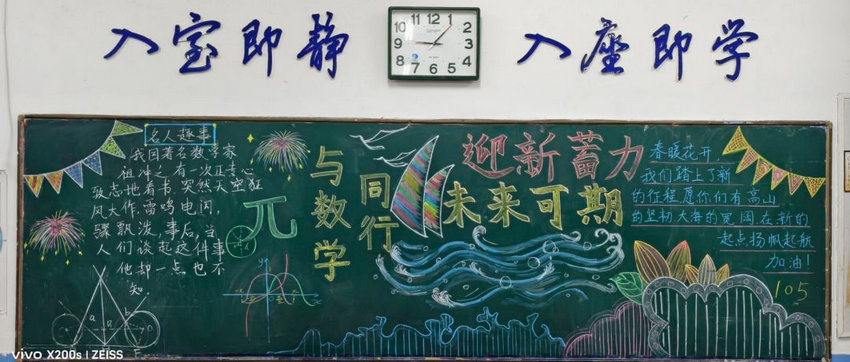 入室即静
入座即学
名人趣事
我国著名数学家
祖冲之有一次正专心
致志地看书,突然天空狂
风大作,雷鸣电闪,
骤飘泼,事后,当
人们谈起这件事
他却一点也不
知
π
与数学
同行
迎新蓄力
未来可期
春暖花开,
我们踏上了新
的征程,愿你们有高山
的坚韧大海的
在新的
起点扬帆起航
加油!
105
vivo X200s | ZEISS